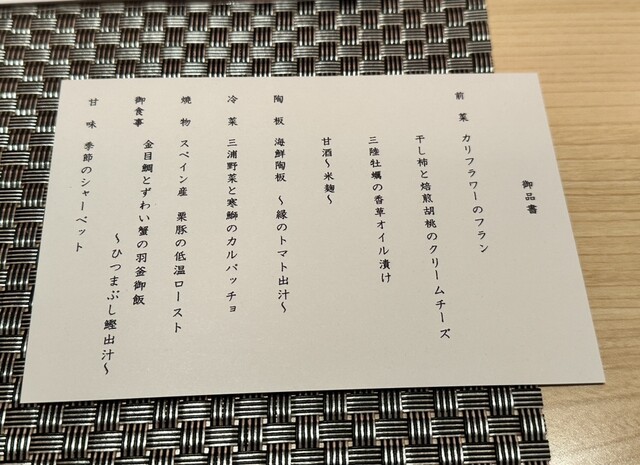 御品書
前菜 カリフラワーのフラン
干し柿と焙煎胡桃のクリームチーズ
三陸牡蠣の香草オイル漬け
甘酒～米麹～
陶板 海鮮陶板 ～縁のトマト出汁～
冷菜 三浦野菜と寒鰤のカルパッチョ
焼物 スペイン産 栗豚の低温ロースト
御食事 金目鯛とずわい蟹の羽釜御飯
～ひつまぶし鰹出汁～
甘味 季節のシャーベット